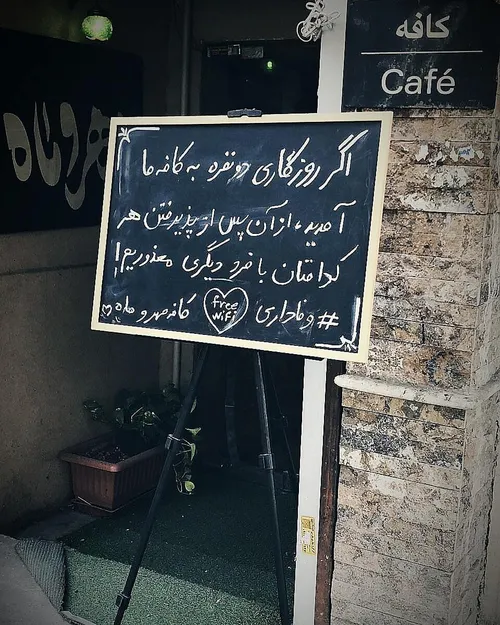 کافه
Café
مهر و ماه
اگر روزگاری دونفره به کافه ما
آمدید، از آن پس از پذیرفتن هر
کدامتان با فرد دیگری معذوریم!
#وفاداری free WiFi کافه مهر و ماه